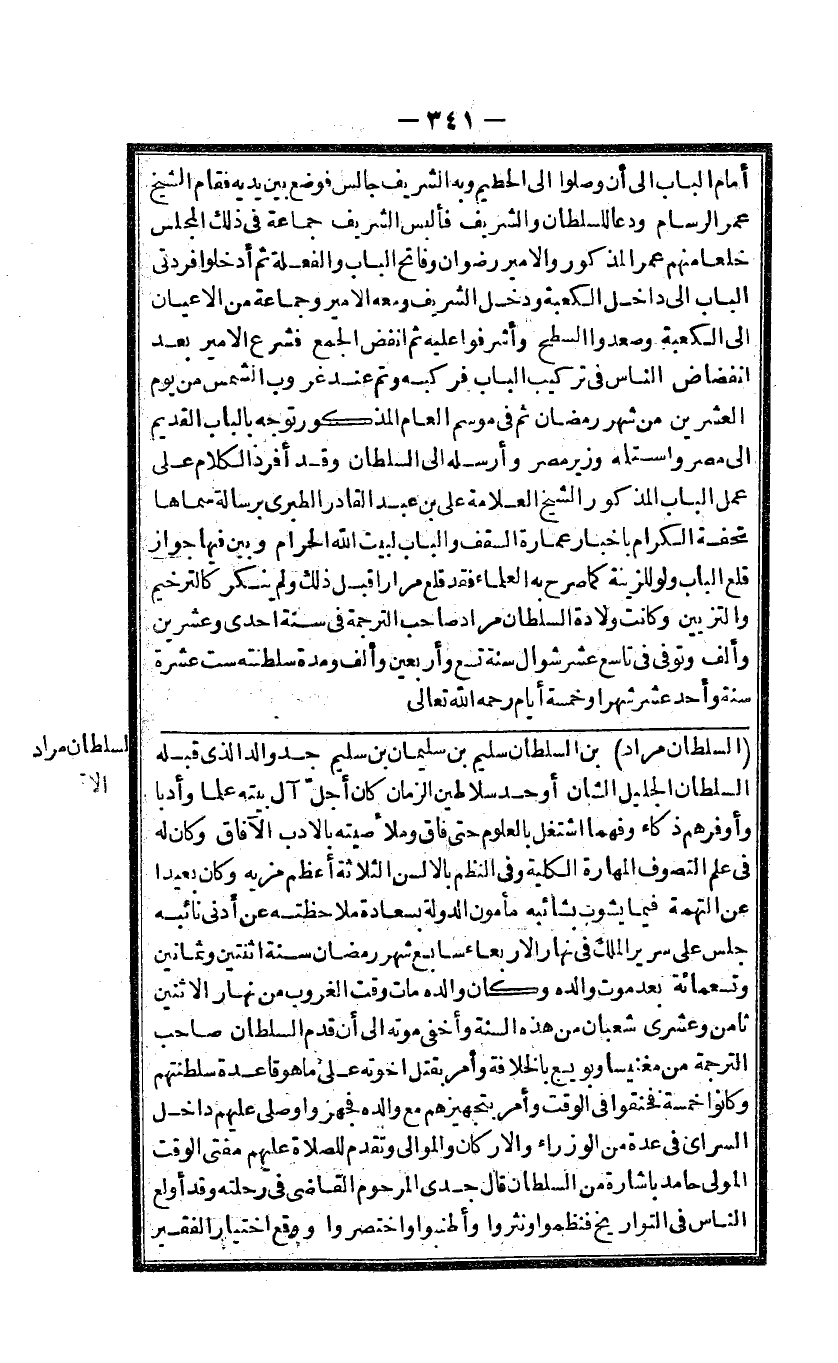 — ٣٤١ —
أمام الباب الى أن وصلوا الى الحطيم وبه الشريف جالس فوضع بين يديه فقام الشيخ
عمر الرسام ودعا للسلطان والشريف فألبس الشريف جماعة فى ذلك المجلس
خلعا منهم عمر المذكور والامير رضوان وفاتح الباب والفعلة ثم أدخلوا فردتى
الباب الى داخل الكعبة ودخل الشريف ومعه الامير وجماعة من الاعيان
الى الكعبة وصعدوا السطح وأشرفوا عليه ثم انفض الجمع فشرع الامير بعد
انفضاض الناس فى تركيب الباب فركبه وتم عند غروب الشمس من يوم
العشرين من شهر رمضان ثم فى موسم العام المذكور توجه بالباب القديم
الى مصر واستلمه وزير مصر وأرسله الى السلطان وقد أفرد الكلام على
عمل الباب المذكور الشيخ العلامة على بن عبد القادر الطبرى برسالة سماها
تحفة الكرام باخبار عمارة السقف والباب لبيت الله الحرام وبين فيها جواز
قلع الباب ولو للزينة كما صرح به العلماء فقد قلع مرارا قبل ذلك ولم ينكر كالترخيم
والتزيين وكانت ولادة السلطان مراد صاحب الترجمة فى سنة احدى وعشرين
وألف وتوفى فى تاسع عشر شوال سنة تسع وأربعين وألف ومدة سلطنته ست عشرة
سنة وأحد عشر شهرا وخمسة أيام رحمه الله تعالى
السلطان مراد
(السلطان مراد) بن السلطان سليم بن سليمان بن سليم جد والد الذى قبله
السلطان الجليل الشان أوحد سلاطين الزمان كان أجل آل بيته علما وأدبا
وأوفرهم ذكاء وفهما اشتغل بالعلوم حتى فاق وملأ صيته بالادب الآفاق وكان له
فى علم التصوف المهارة الكلية وفى النظم بالالسن الثلاثة أعظم مزيه وكان بعيدا
عن التهمة فيما يشوب بشائبه مأمون الدولة بسعادة ملاحظته عن أدنى نائبه
جلس على سرير الملك فى نهار الاربعاء سابع شهر رمضان سنة اثنتين وثمانين
وتسعمائة بعد موت والده وكان والده مات وقت الغروب من نهار الاثنين
ثامن وعشرى شعبان من هذه السنة وأخفى موته الى أن قدم السلطان صاحب
الترجمة من مغنيسا وبويع بالخلافة وأمر بقتل اخوته على ما هو قاعدة سلطنتهم
وكانوا خمسة فخنقوا فى الوقت وأمر بتجهيزهم مع والده فجهزوا وصلى عليهم داخل
السراى فى عدة من الوزراء والاركان والموالى وتقدم للصلاة عليهم مفتى الوقت
المولى حامد باشارة من السلطان قال جدى المرحوم القاضى فى رحلته وقد أولع
الناس فى التواريخ فنظموا ونثروا وأطنبوا واختصروا ووقع اختيار الفقير